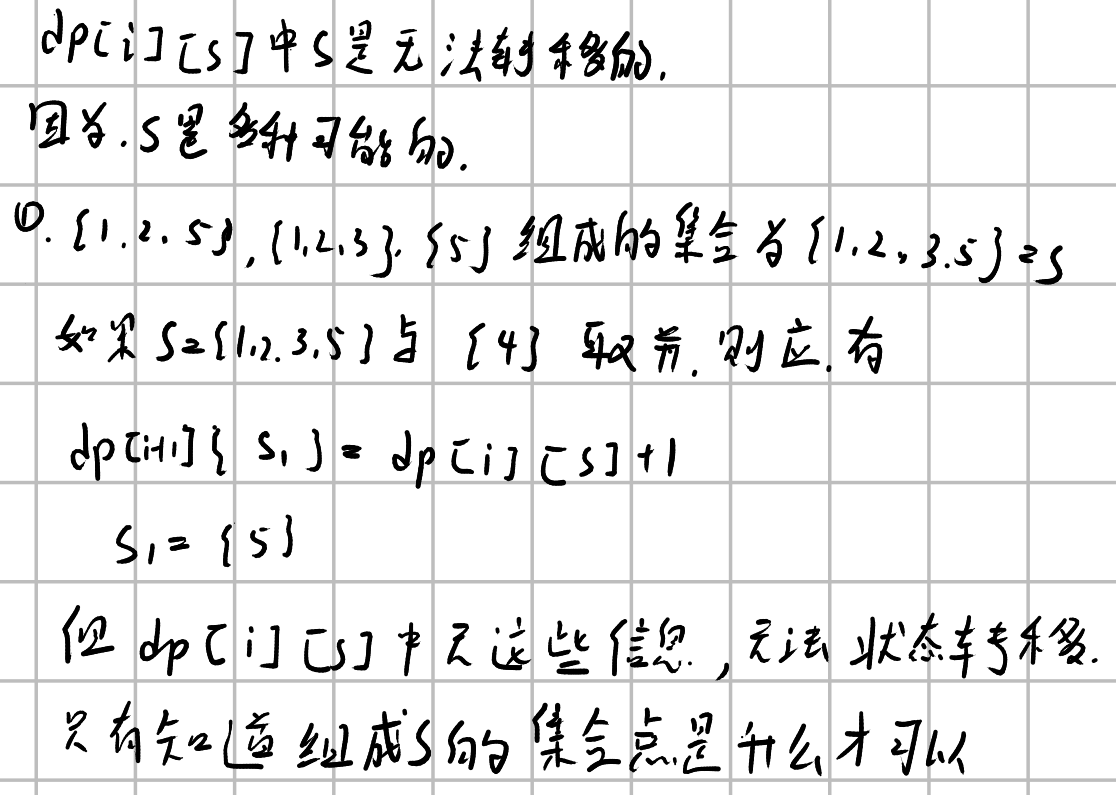 dp[i][s]中s是无法转移的.
因为.s是多种可能的.
①.{1.2.5},{1,2,3}.{5}组成的集合为{1.2,3.5}=s
如果S={1,2.3,5}与{4}取并.则应.有
dp[i+1]{s₁}=dp[i][s]+1
S₁={5}
但dp[i][s]中无这些信息.,无法状态转移.
只有知道组成S的集合点是什么才可以